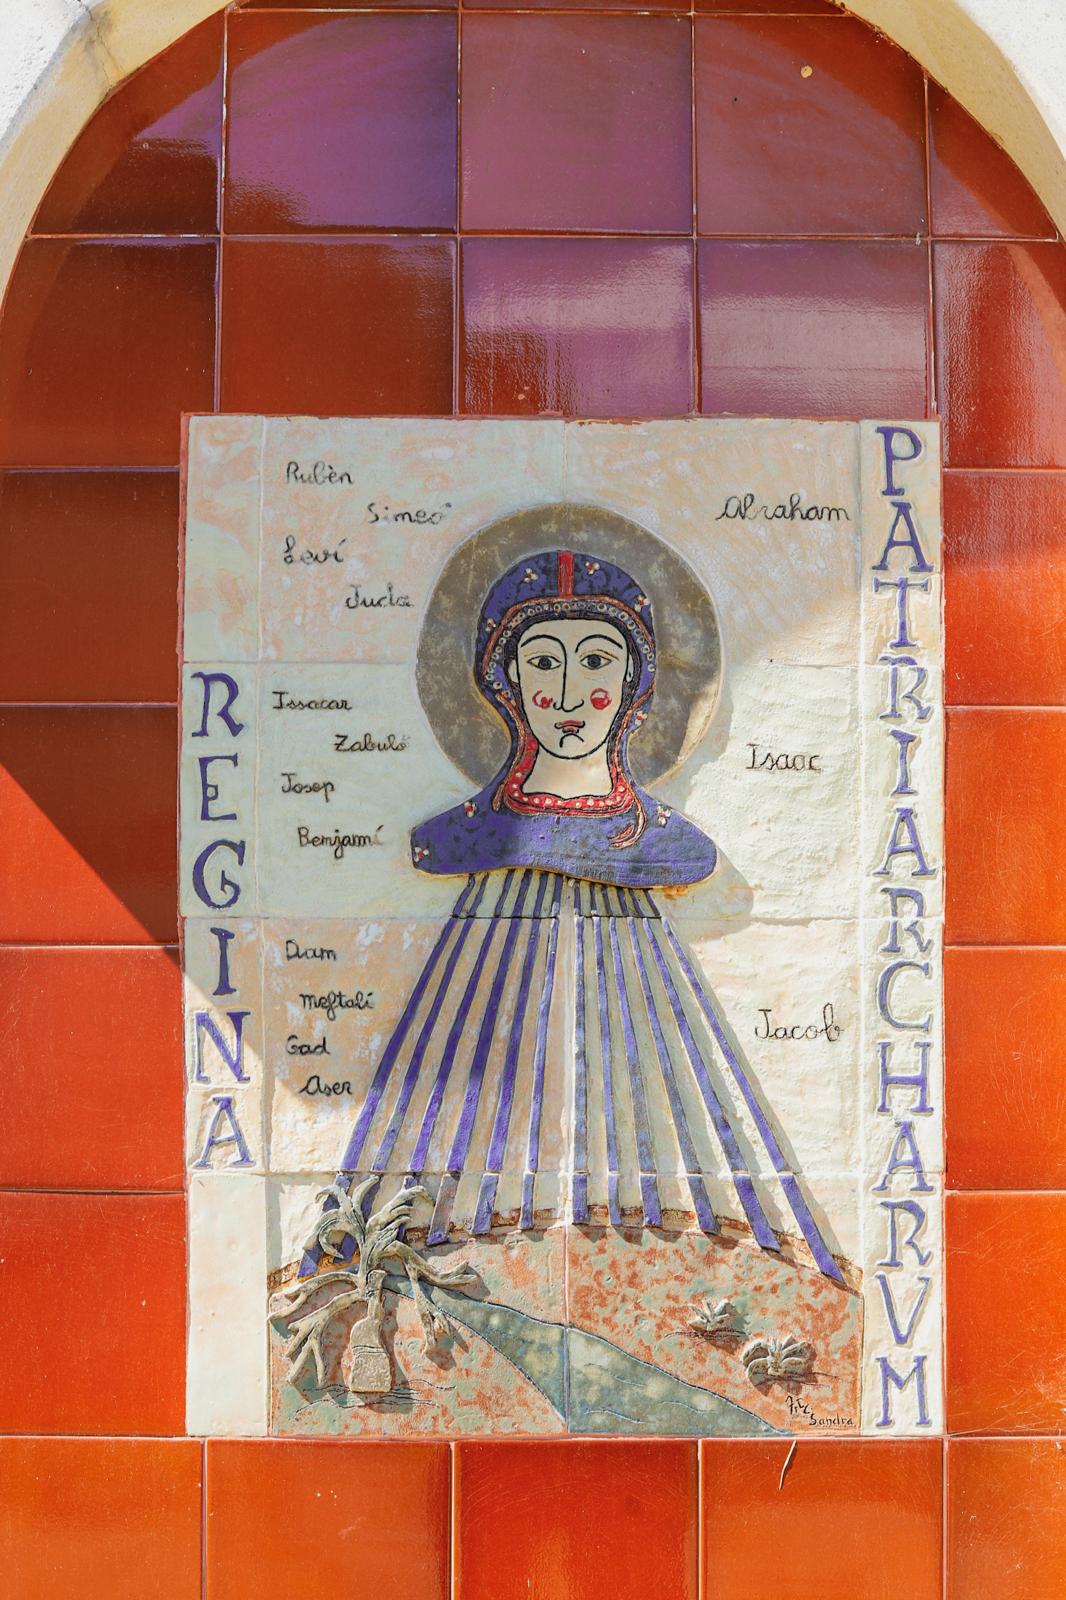 REGINA
PATRIARCHARVM
Rubèn
Simeó
Leví
Juda
Issacar
Zabuló
Josep
Benjamí
Dam
Neftalí
Gad
Aser
Abraham
Isaac
Jacob
Sandra